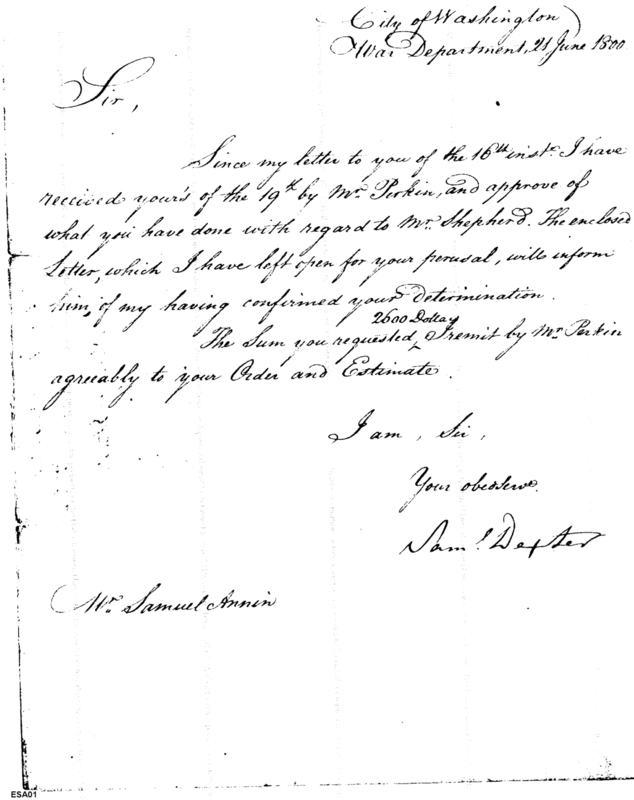 City of Washington
War Department, 21 June 1800
Sir,
Since my letter to you of the 16th inst. I have
received your's of the 19th by Mr. Perkin, and approve of
what you have done with regard to Mr. Shepherd. The enclosed
Letter, which I have left open for your perusal, will inform
him, of my having confirmed your determination.
2600 Dollars
The Sum you requested, I remit by Mr. Perkin
agreeably to your Order and Estimate.
I am, Sir,
Your obedserv.
Saml. Dexter
Mr. Samuel Annin
ESA01